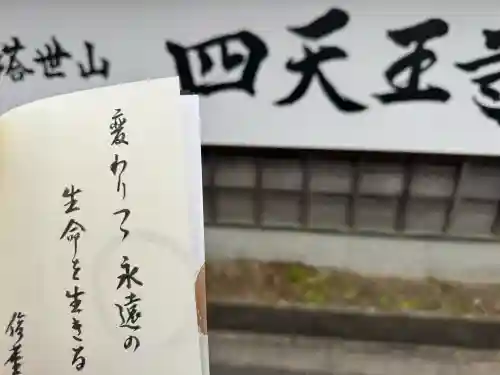 塔世山
四天王寺
変わりつつ永遠の
生命を生きる